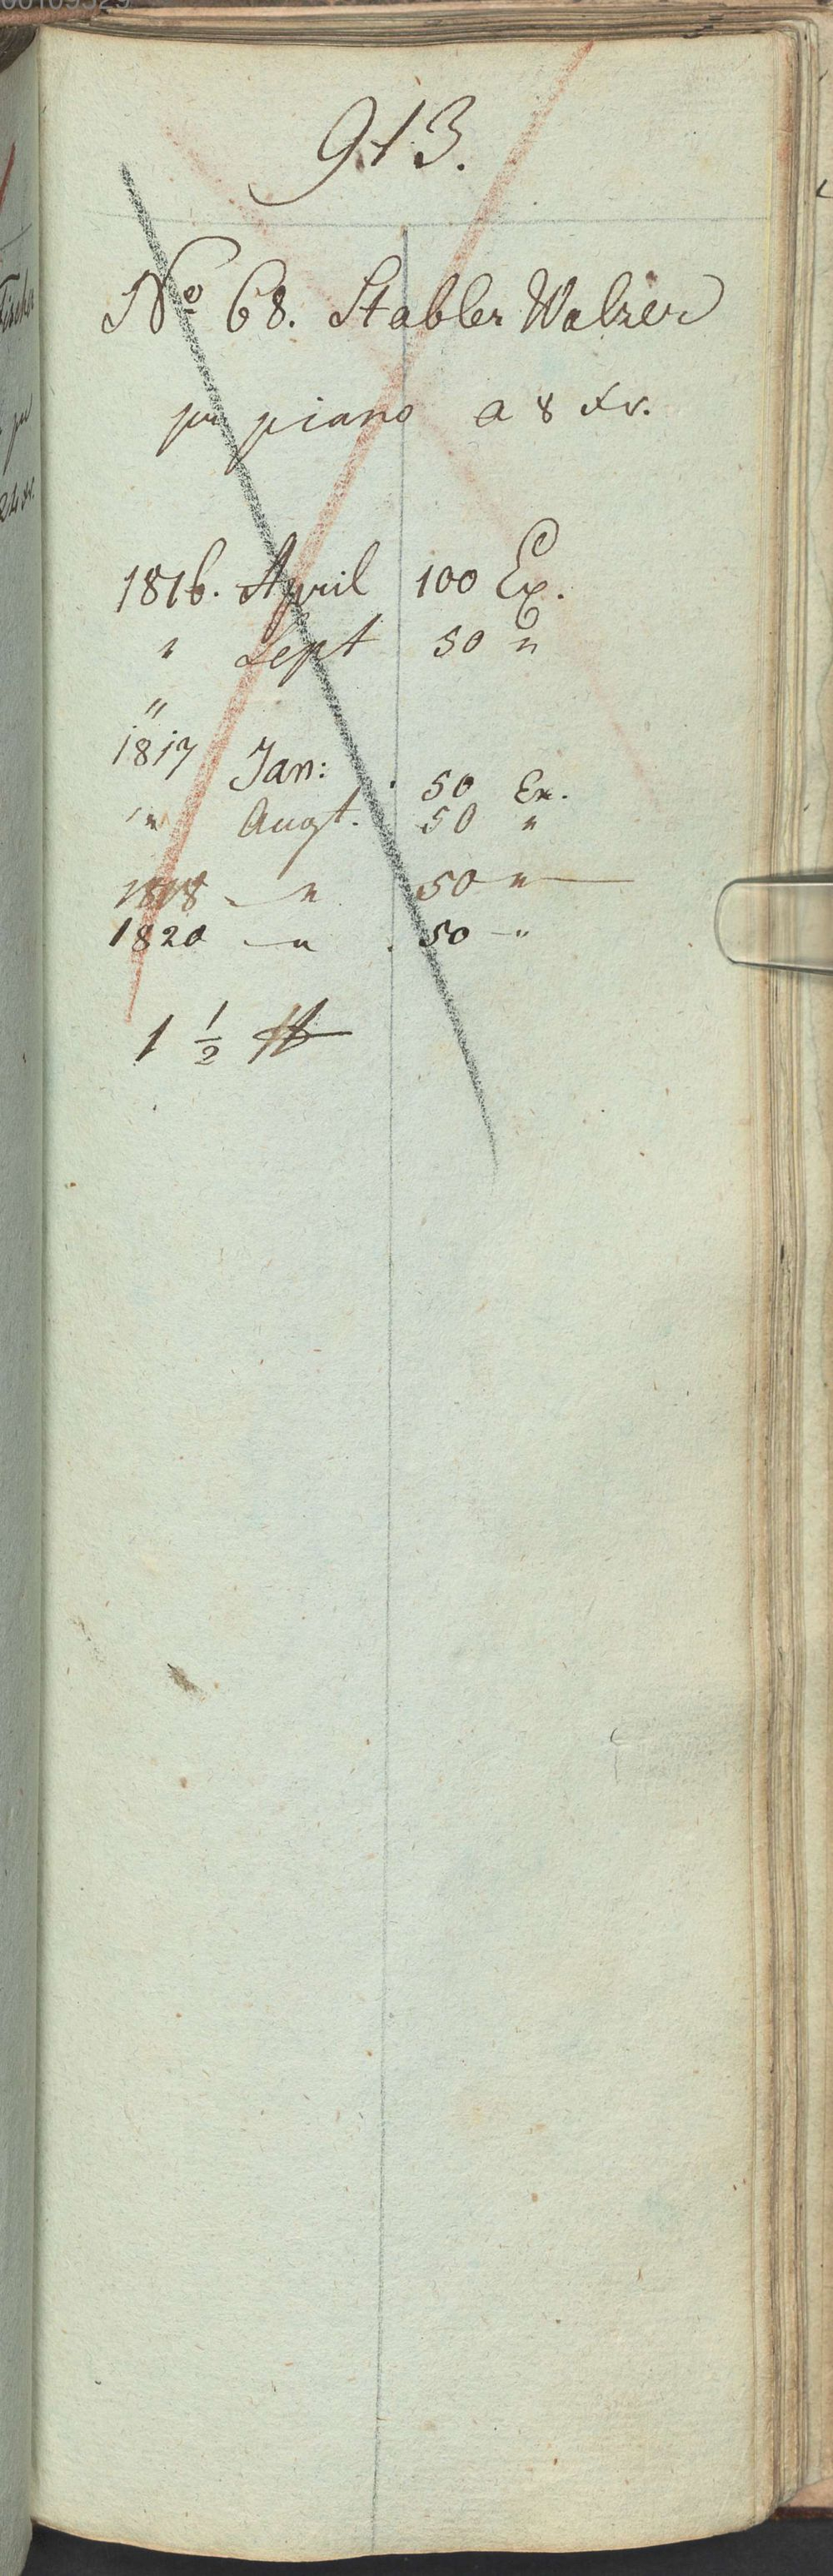 913.
No 68. Stabler Walzer
pr piano a 8 xr.
1816. April 100 Ex.
" Sept 50 "
"
1817 Jan: 50 Ex.
" Augt. 50 "
1818 - " 50 "
1820 - " 50 - "
1 1/2 ℔